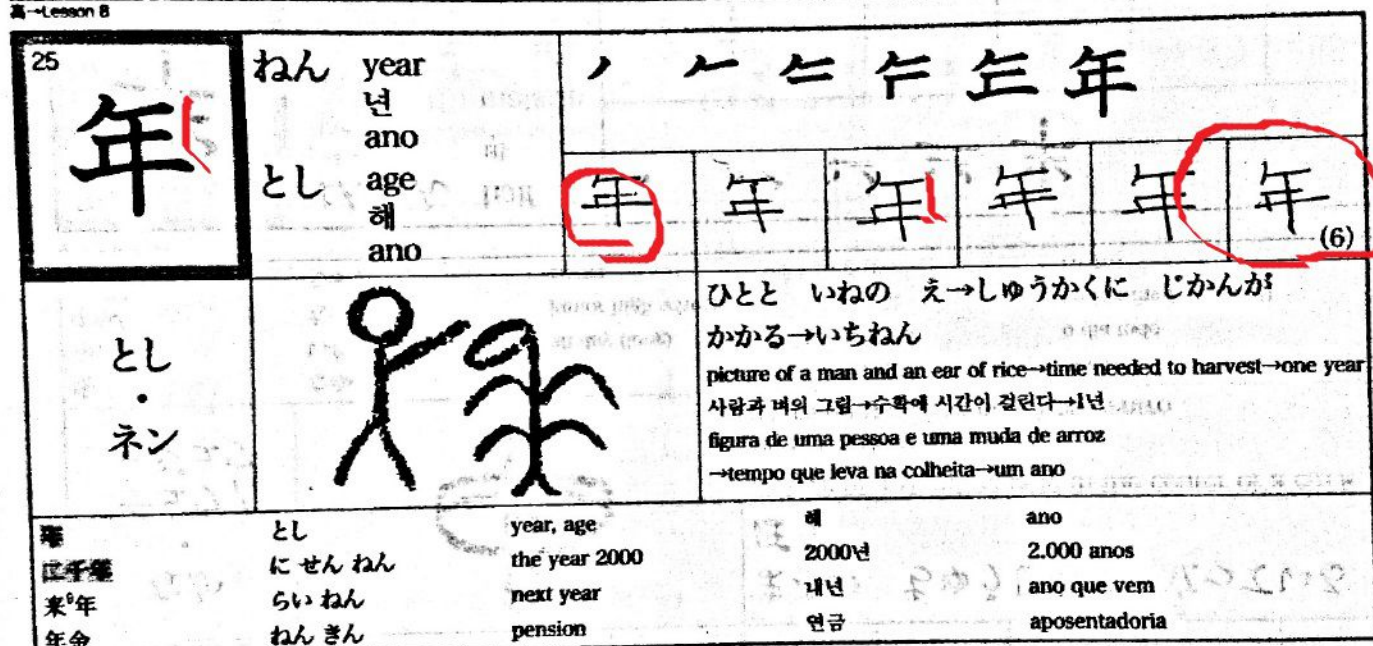 高→Lesson 8
25
年
ねん year
년
ano
とし age
해
ano
年
年 年 年 年 年 年
(6)
とし
・
ネン
ひとと いねの え→しゅうかくに じかんが
かかる→いちねん
picture of a man and an ear of rice→time needed to harvest→one year
사람과 벼의 그림→수확에 시간이 걸린다→1년
figura de uma pessoa e uma muda de arroz
→tempo que leva na colheita→um ano
年 とし year, age 해 ano
二千年 に せん ねん the year 2000 2000년 2.000 anos
来年 らい ねん next year 내년 ano que vem
年金 ねん きん pension 연금 aposentadoria